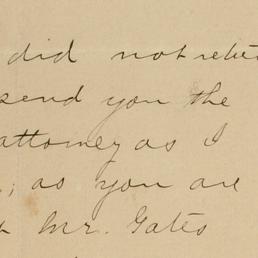 did not
send you the
attorney as I
; as you are
Mr. Gates